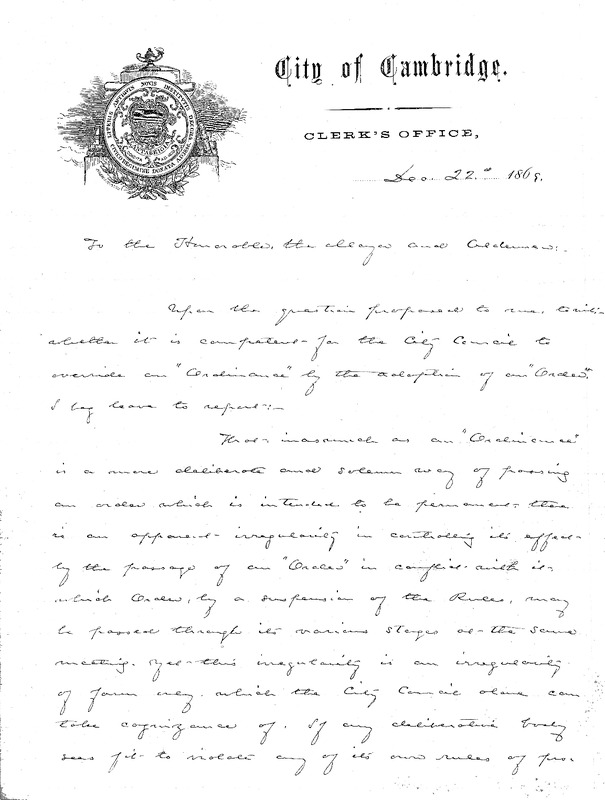 LITERIS ANTIQUIS NOVIS INSTITUTIS DECORA
CIVICO REGIMINE DONATA
CANTABRIGIA
City of Cambridge.
CLERK'S OFFICE,
Dec. 22nd 1869.
To the Honorable, the Mayor and Aldermen:
Upon the question proposed to me,
whether it is competent for the City Council to
override an "Ordinance" by the adoption of an "Order".
I beg leave to report:-
That inasmuch as an "Ordinance"
is a more deliberate and solemn way of passing
an order which is intended to be permanent there
is an apparent irregularity in controlling its effect
by the passage of an "Order" in conflict with it
which Order, by a suspension of the Rules, may
be passed through its various stages at the same
meeting. Yet this irregularity is an irregularity
of form only. which the City Council alone can
take cognizance of. If any deliberative body
sees fit to violate any of its own rules of pro-